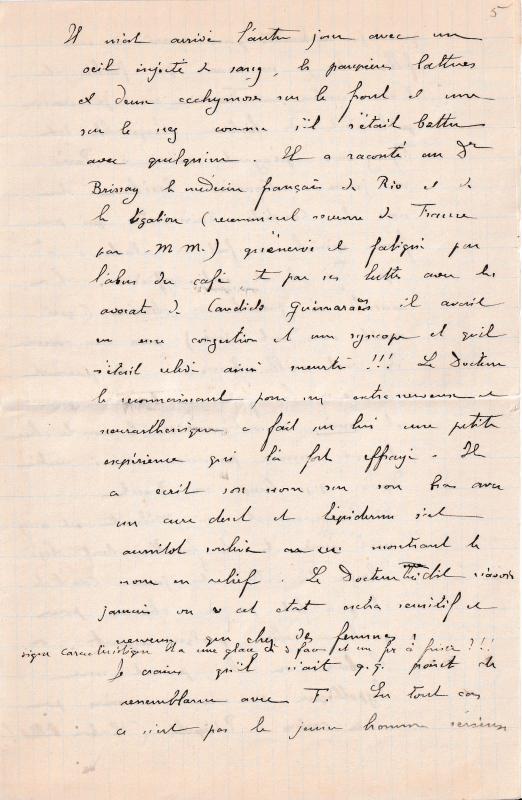 5
Il m'est arrivé l'autre jour avec un
oeil injecté de sang, les paupières battues
et deux ecchymoses sur le front et une
sur le nez comme s'il s'était battu
avec quelqu'un. Il a raconté au Dr
Brissay le médecin français de Rio et de
la légation ( de France
par M M.) qu'énervé et fatigué par
l'abus du café et par ses luttes avec les
avocats de Candido Guimaraës il avait
eu une congestion et une syncope et qu'il
s'était relevé ainsi meurtri !!! Le Docteur
le reconnaissant pour un extra nerveux et
neurasthénique a fait sur lui une petite
expérience qui l'a fort effrayé. Il
a écrit son nom sur son bras avec
un cure dent et l'épiderme s'est
aussitôt soulevé montrant le
nom en relief. Le Docteur dit n'avoir
jamais vu cet état extra sensitif et
nerveux que chez des femmes !
signe caractéristique il a une glace à 3 faces et un fer à friser ?!!
Je crains qu'il n'ait q.q. point de
ressemblance avec F. En tout cas
ce n'est pas le jeune homme sérieux